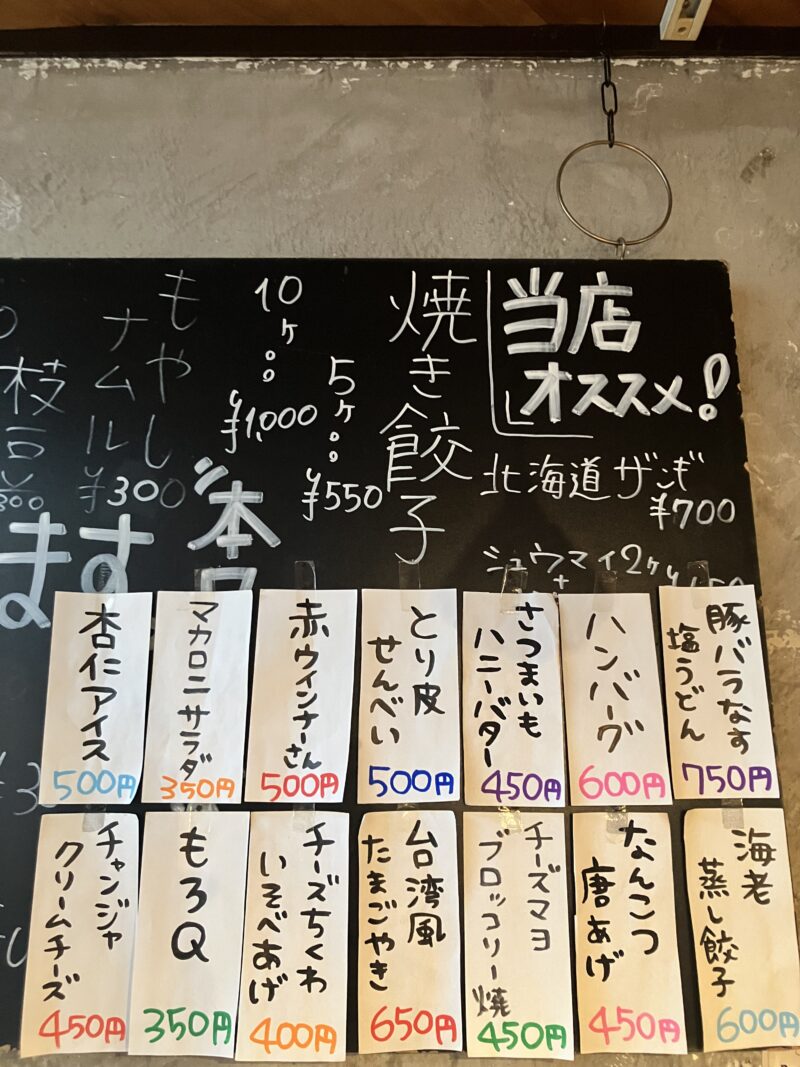 当店
オススメ!
北海道ザンギ
¥700
シュウマイ2ヶ
焼き餃子
5ヶ
¥550
10ヶ
¥1,000
もやし
ナムル
¥300
枝豆
ます
本日
豚バラなす
塩うどん
750円
ハンバーグ
600円
さつまいも
ハニーバター
450円
とり皮
せんべい
500円
赤ウインナーさん
500円
マカロニサラダ
350円
杏仁アイス
500円
海老
蒸し餃子
600円
なんこつ
唐あげ
450円
チーズマヨ
ブロッコリー焼
450円
台湾風
たまごやき
650円
チーズちくわ
いそべあげ
400円
もろQ
350円
チャンジャ
クリームチーズ
450円